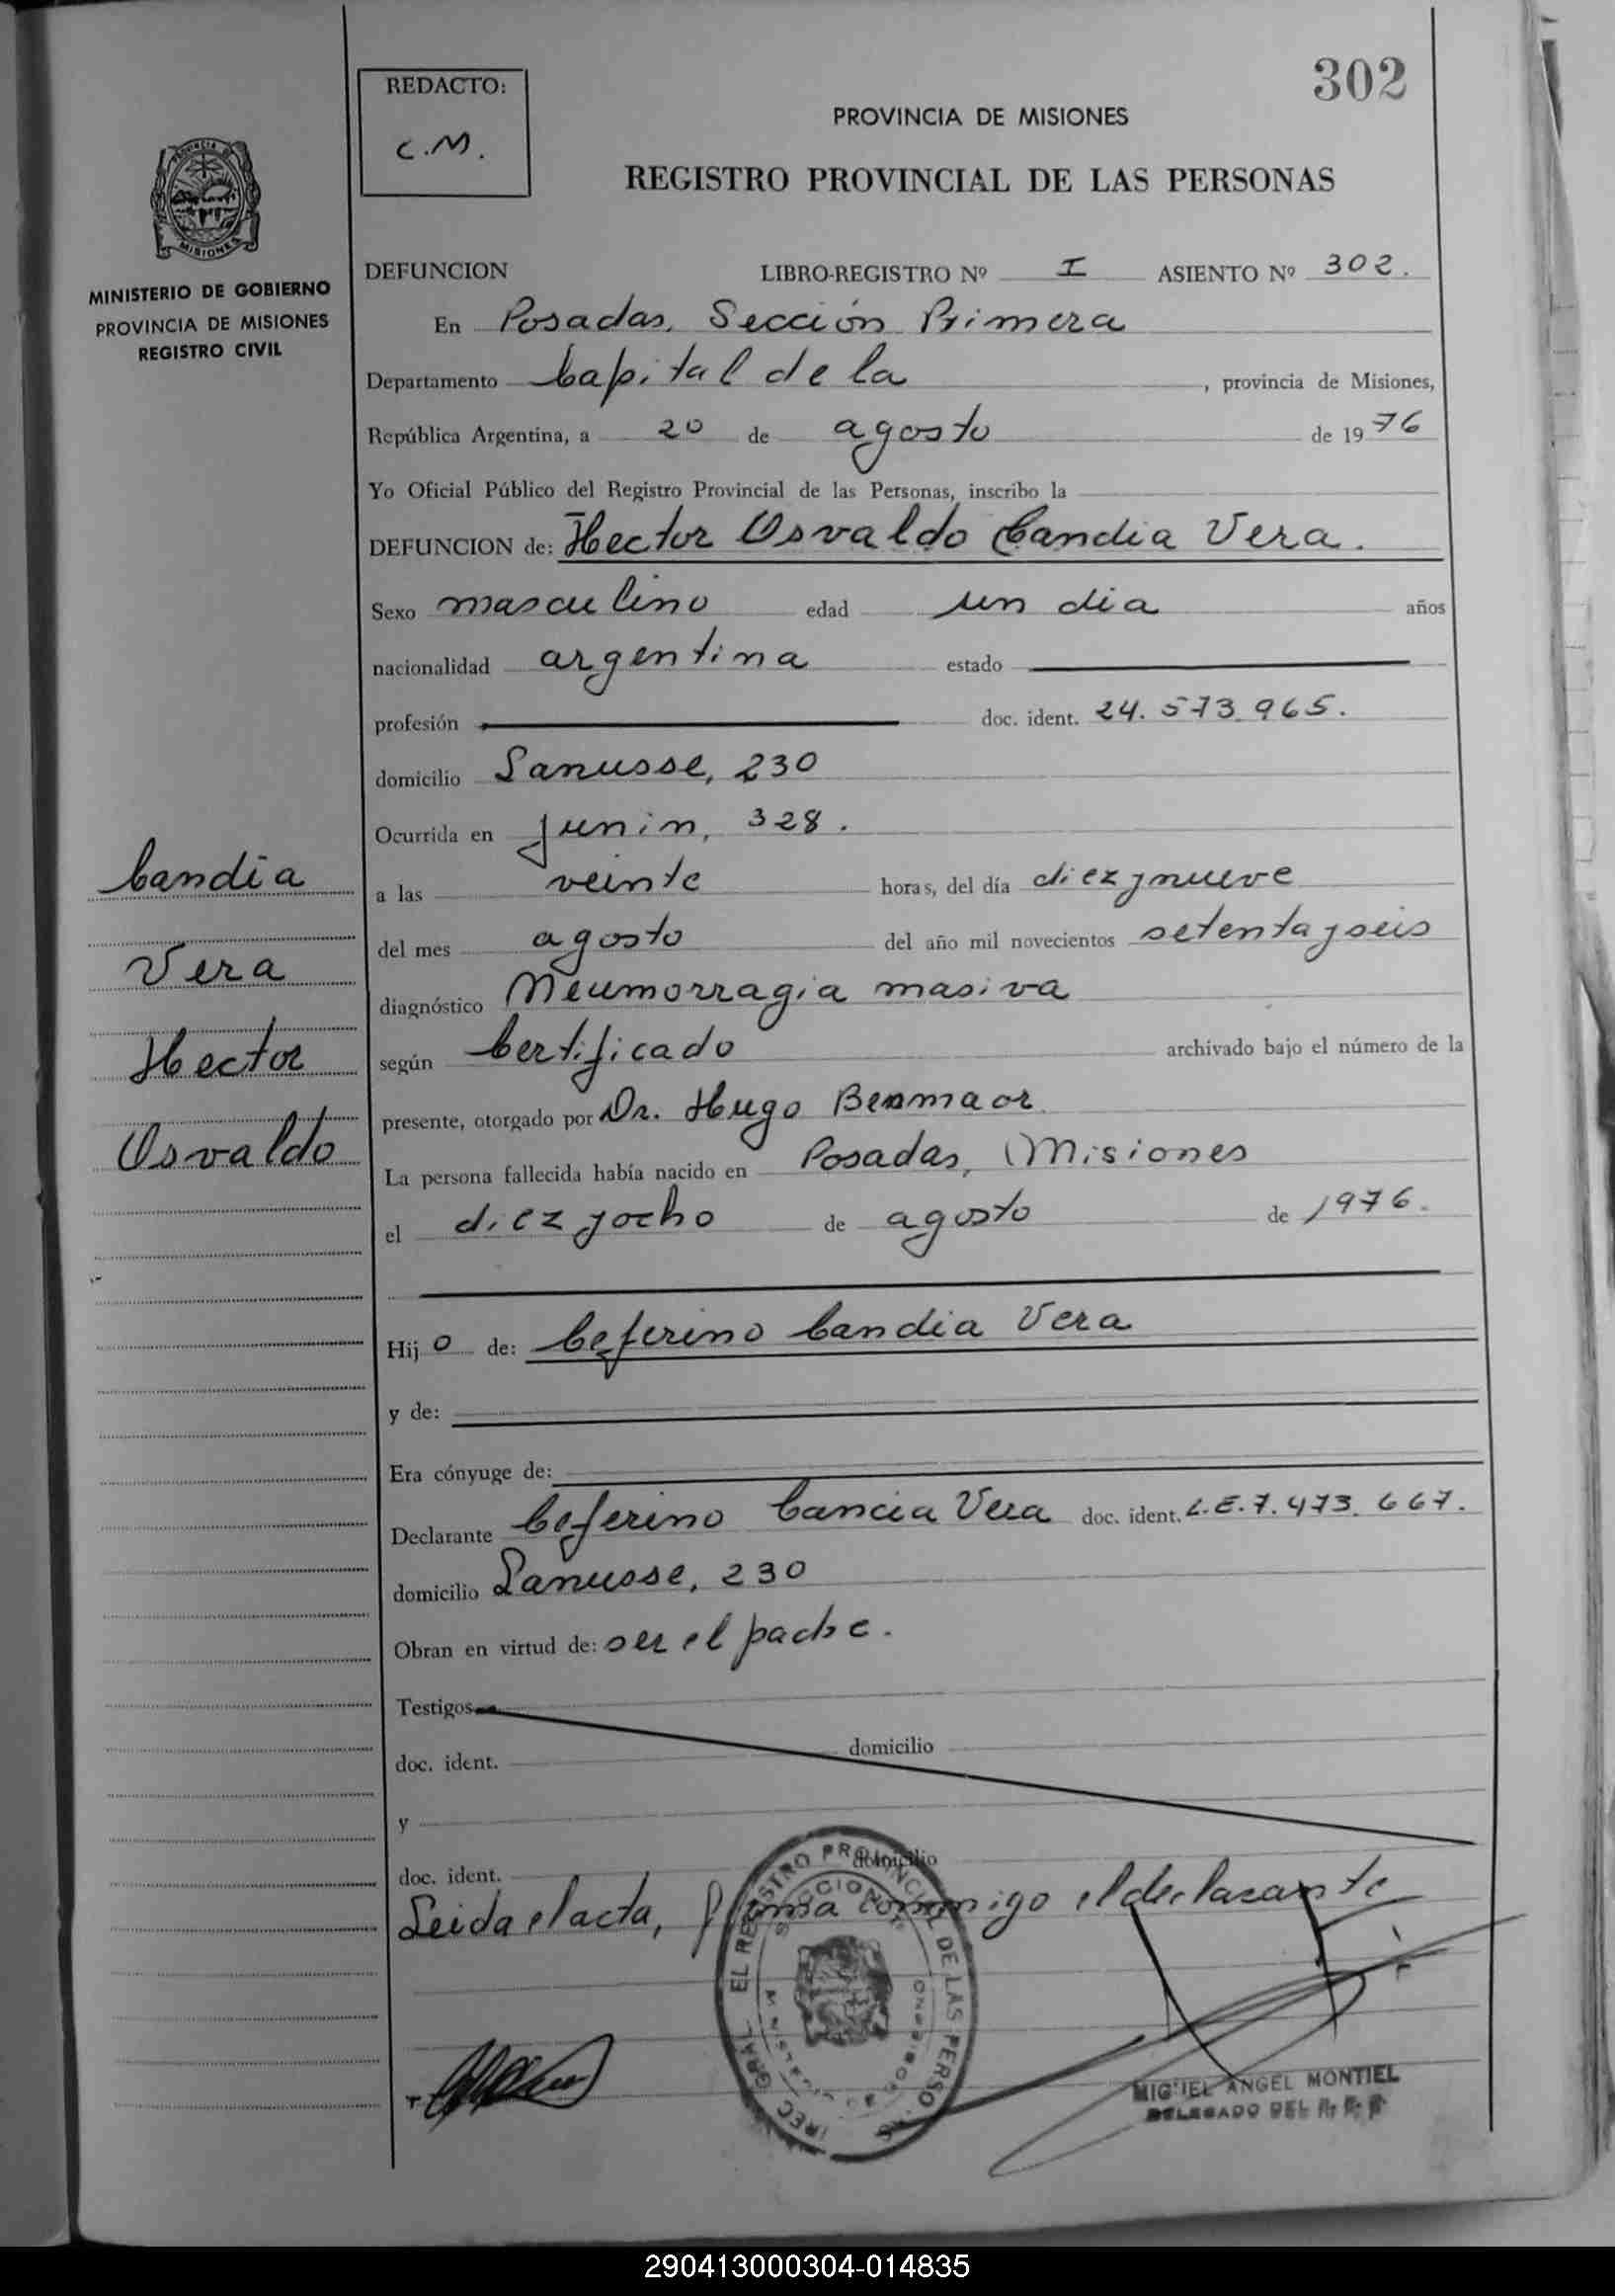 302
REDACTO:
C.M.
PROVINCIA DE MISIONES
REGISTRO PROVINCIAL DE LAS PERSONAS
MISIONES
MINISTERIO DE GOBIERNO
PROVINCIA DE MISIONES
REGISTRO CIVIL
DEFUNCION LIBRO-REGISTRO Nº I ASIENTO Nº 302.
En Posadas, Sección Primera
Departamento Capital de la, provincia de Misiones,
República Argentina, a 20 de agosto de 1976
Yo Oficial Público del Registro Provincial de las Personas, inscribo la
DEFUNCION de: Hector Osvaldo Candia Vera.
Sexo masculino edad un dia años
nacionalidad argentina estado
profesión doc. ident. 24.573.965.
domicilio Lanusse, 230
Ocurrida en Junin, 328.
a las veinte horas, del día diez y nueve
del mes agosto del año mil novecientos setenta y seis
diagnóstico Neumorragia masiva
según Certificado archivado bajo el número de la
presente, otorgado por Dr. Hugo Benmaor
La persona fallecida había nacido en Posadas, Misiones
el diez y ocho de agosto de 1976.
Candia
Vera
Hector
Osvaldo
Hijo de: Ceferino Candia Vera
y de:
Era cónyuge de:
Declarante Ceferino Cancia Vera doc. ident. L.E.7.473.667.
domicilio Lanusse, 230
Obran en virtud de: ser el padre.
Testigos
doc. ident. domicilio
y
doc. ident. domicilio
Leida el acta, firma conmigo el declarante
MIGUEL ANGEL MONTIEL
DELEGADO DEL
290413000304-014835